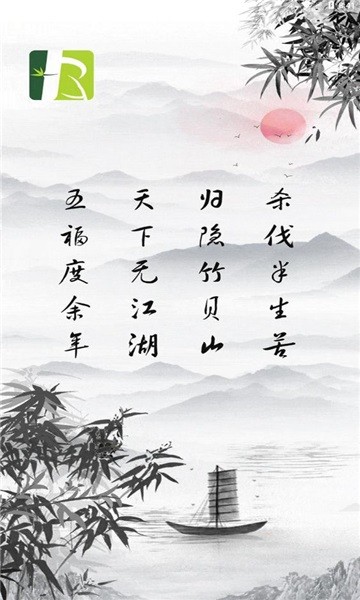 杀伐半生苦
归隐竹贝山
天下无江湖
五福度余年